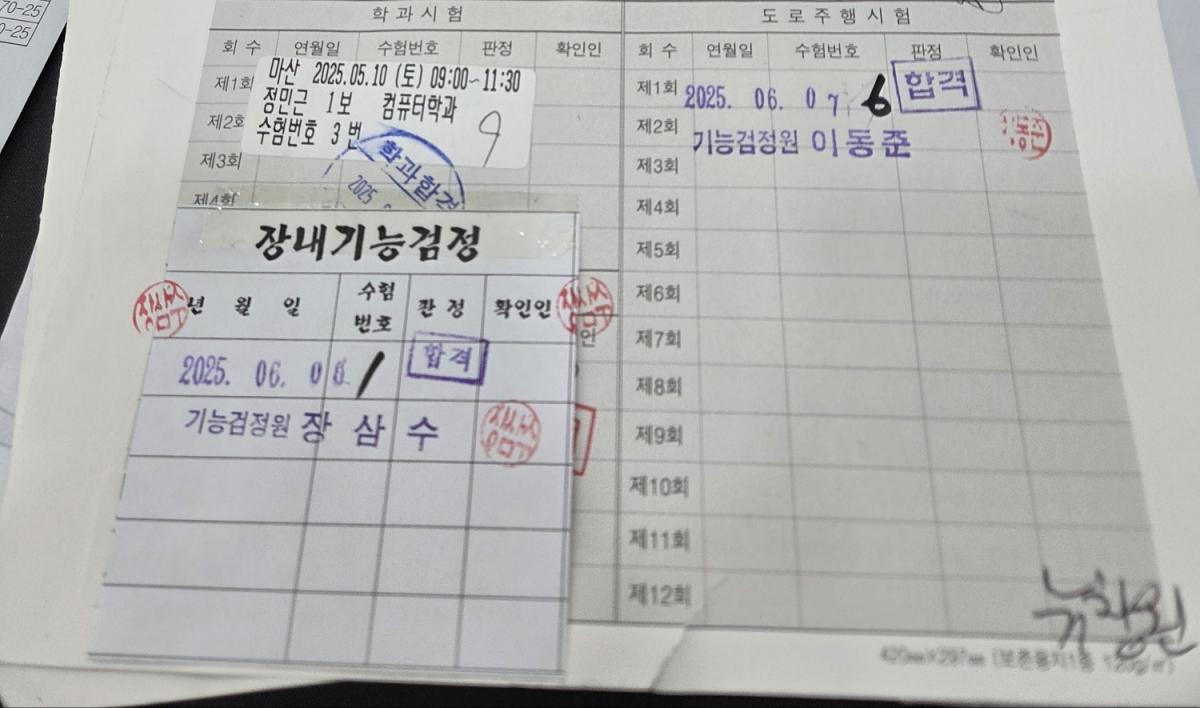 70-25
0-25
학과시험
회 수 연월일 수험번호 판정 확인인
제1회
마산 2025.05.10 (토) 09:00~11:30
정민근 1보 컴퓨터학과
수험번호 3 번
9
제2회
제3회
제4회
학과합격
2025.
장내기능검정
년 월 일 수험번호 판정 확인인
2025. 06. 0 / 합격
기능검정원 장 삼 수
인
도로주행시험
회 수 연월일 수험번호 판정 확인인
제1회 2025. 06. 07 6 합격
제2회 기능검정원 이동준
제3회
제4회
제5회
제6회
제7회
제8회
제9회
제10회
제11회
제12회
420㎜×297㎜ (보존용지1종 120g/㎡)